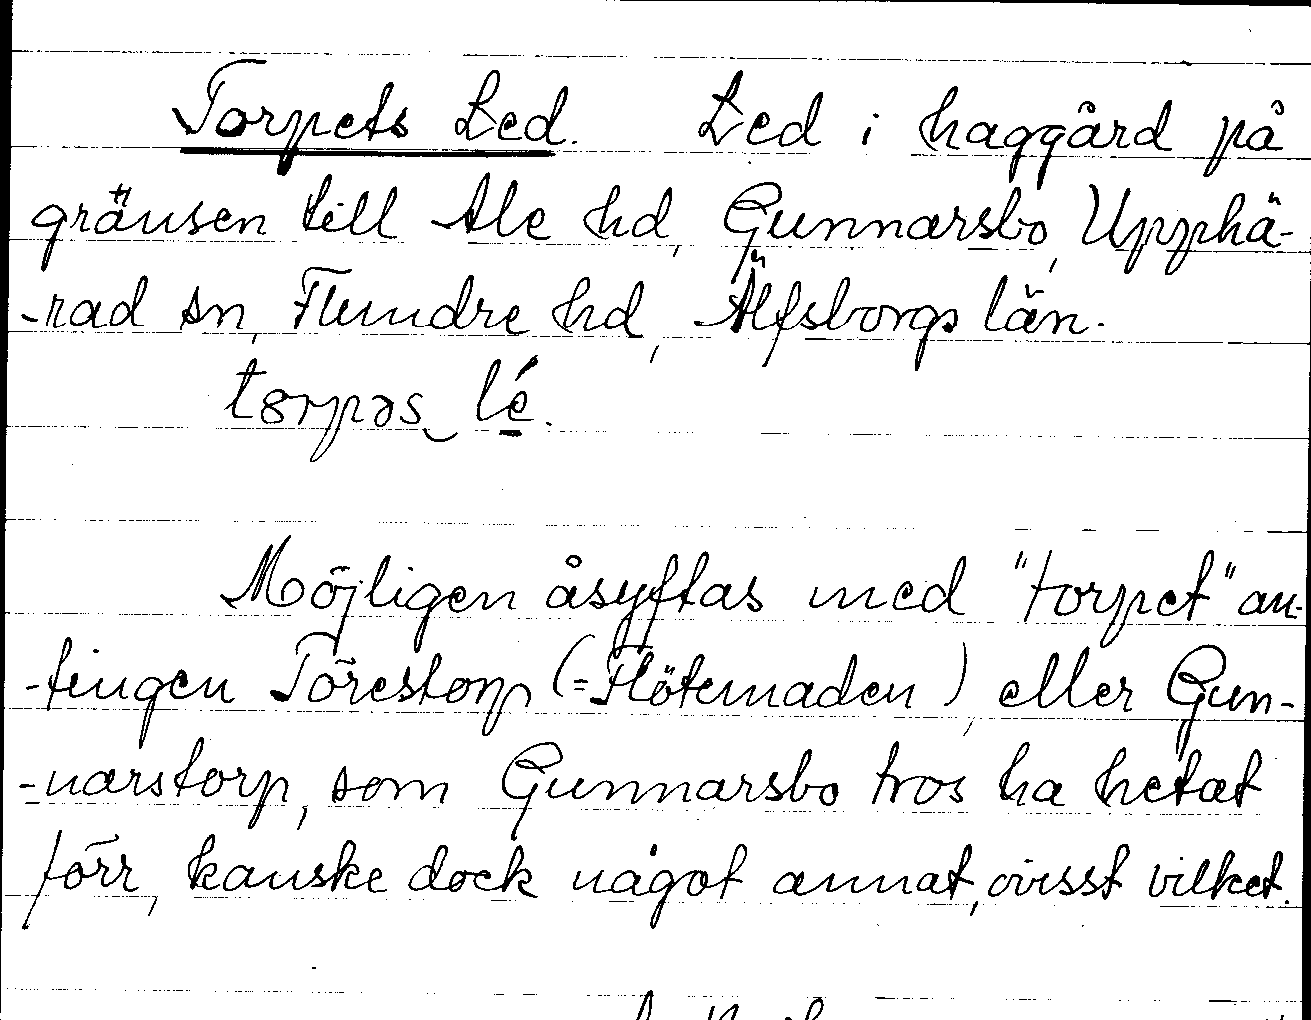 Torpets Led. Led i haggård på
gränsen till Ale hd, Gunnarsbo, Upphä-
-rad sn, Flundre hd, Älfsborgs län.
tørpəs‿ lé.
Möjligen åsyftas med "torpet" an-
-tingen Törestorp (=Flötemaden), eller Gun-
-narstorp, som Gunnarsbo tros ha hetat
förr, kanske dock något annat, ovisst vilket.